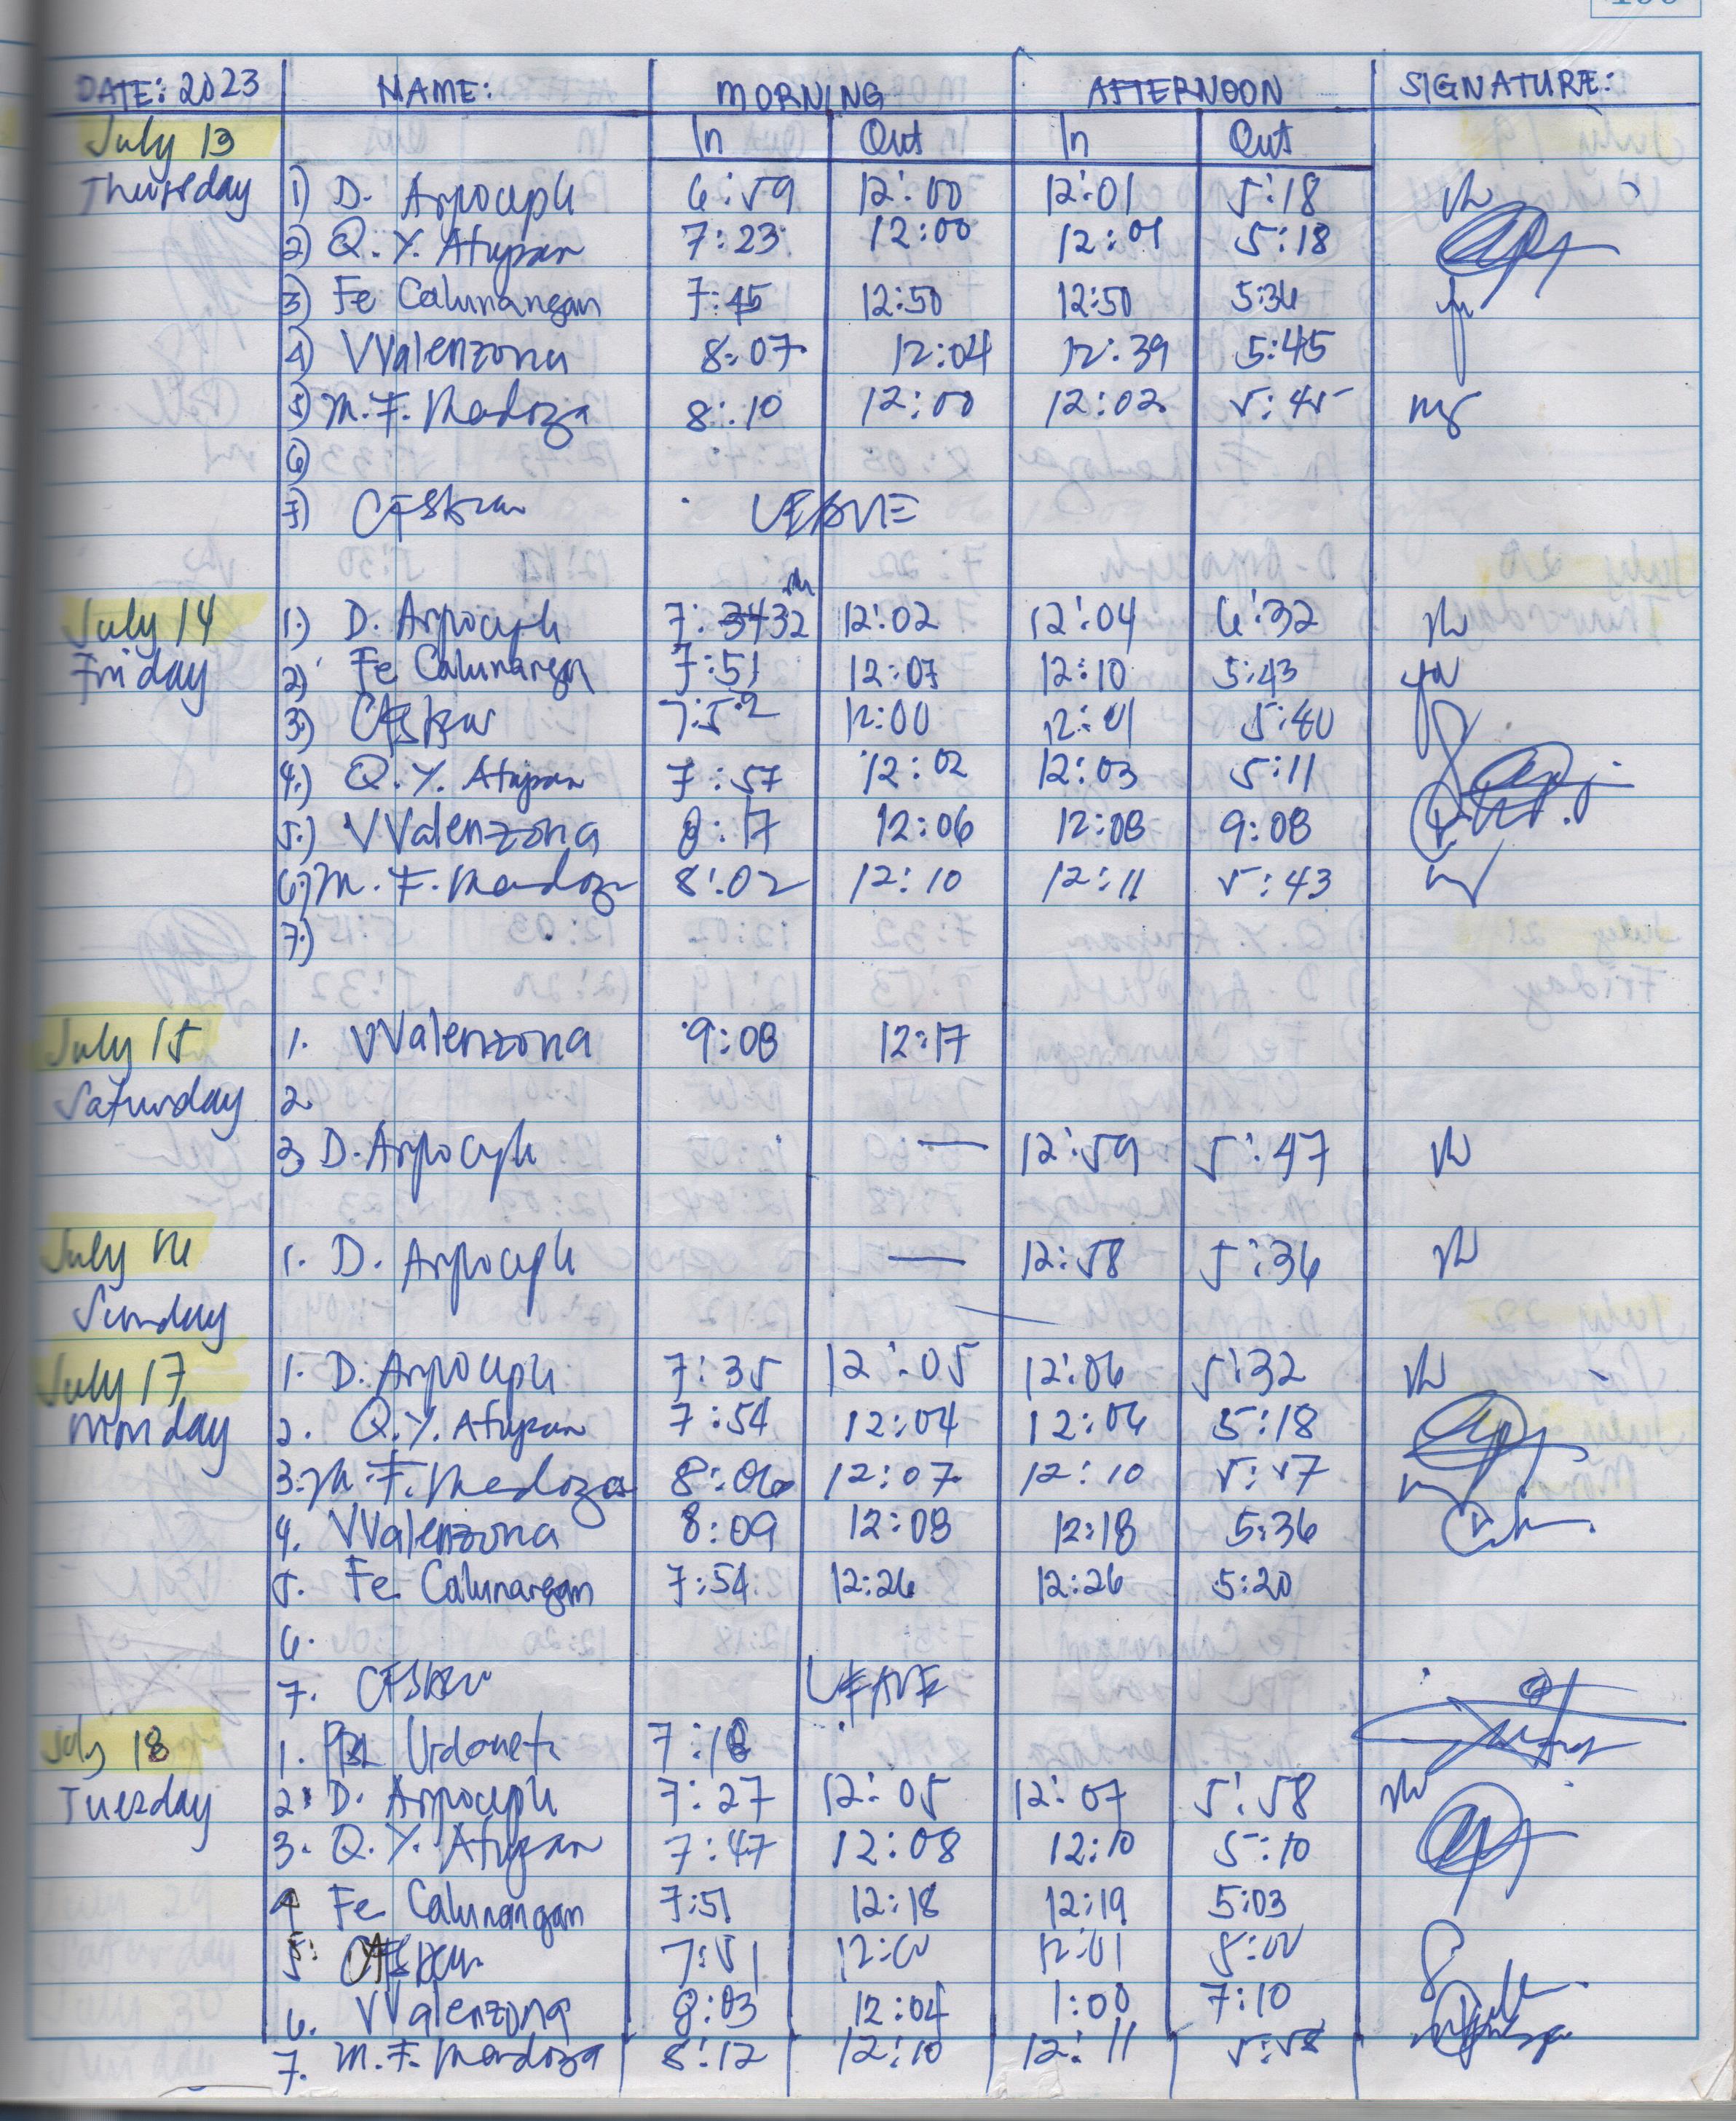 DATE: 2023 NAME: MORNING AFTERNOON SIGNATURE:
July 13 In Out In Out
Thursday 1) D. 6:59 12:00 12:01 5:18
2) Q. Y. Atupan 7:23 12:00 12:01 5:18
3) Fe Calunangan 7:45 12:50 12:50 5:36
4) VValenzona 8:07 12:04 12:39 5:45
5) M. F. Mendoza 8:10 12:00 12:02 5:45
6)
7) LEAVE
July 14 1.) D. 7:3432 12:02 12:04 6:32
Friday 2) Fe Calunangan 7:51 12:07 12:10 5:43
3) 7:52 12:00 12:01 5:40
4.) Q. Y. Atupan 7:57 12:02 12:03 5:11
5.) VValenzona 8:17 12:06 12:08 9:08
6.) M. F. Mendoza 8:02 12:10 12:11 5:43
7.)
July 15 1. VValenzona 9:08 12:17
Saturday 2
3. D. — 12:59 5:47
July 16 1. D. — 12:58 5:36
Sunday
July 17 1. D. 7:35 12:05 12:06 5:32
Monday 2. Q. Y. Atupan 7:54 12:04 12:06 5:18
3. M. F. Mendoza 8:06 12:07 12:10 5:57
4. VValenzona 8:09 12:08 12:18 5:36
5. Fe Calunangan 7:54 12:26 12:26 5:20
6.
7. LEAVE
July 18 1. Urdaneta 7:18
Tuesday 2. D. 7:27 12:05 12:07 5:58
3. Q. Y. Atupan 7:47 12:08 12:10 5:10
4 Fe Calunangan 7:51 12:18 12:19 5:03
5. 7:51 12:00 12:01 5:00
6. VValenzona 8:03 12:04 1:00 7:10
7. M. F. Mendoza 8:12 12:10 12:11 5:58